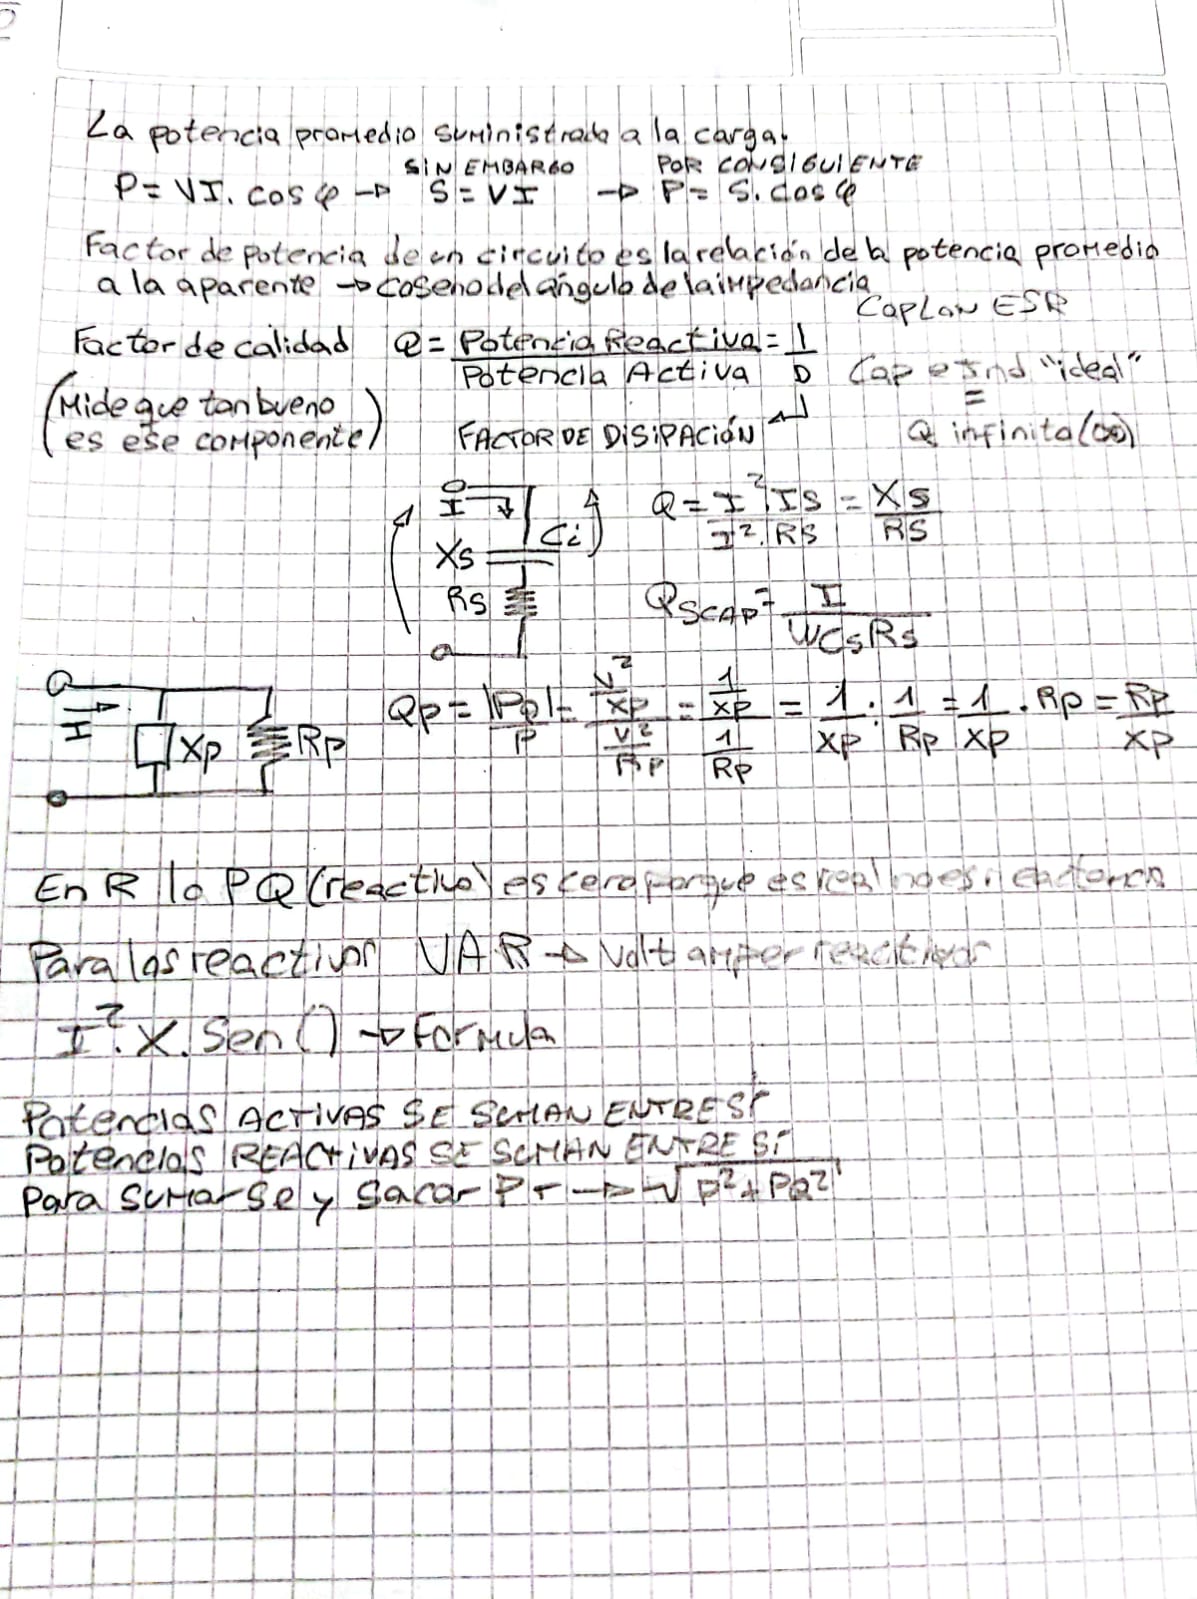 La potencia promedio suministrada a la carga.
SIN EMBARGO POR CONSIGUIENTE
P = VI. cos φ → S = VI → P = S. cos φ
Factor de potencia de un circuito es la relación de la potencia promedio
a la aparente → coseno del ángulo de la impedancia
Cap Low ESR
Factor de calidad Q = Potencia Reactiva / Potencia Activa = 1 / D
Cap e Ind "ideal"
=
Q infinita (∞)
(Mide que tan bueno
es ese componente)
FACTOR DE DISIPACIÓN ↵
I
Xs
Rs
Q = I². IS / I². RS = XS / RS
QSCAP = I / WCsRs
I
Xp
Rp
Qp = |Pp| / P = V²/Xp / V²/Rp = 1/Xp / 1/Rp = 1/Xp : 1/Rp = 1/Xp . Rp = Rp/Xp
En R la PQ (reactiva) es cero porque es real no es reactancia
Para las reactivas VAR → Volt amper reactivos
I². X. Sen () → Formula
Potencias ACTIVAS SE SUMAN ENTRE SÍ
Potencias REACTIVAS SE SUMAN ENTRE SÍ
Para sumarse y sacar PT → √P² + PQ²